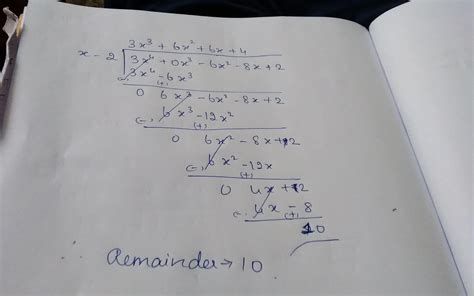 3x³ + 6x² + 6x + 4
x - 2 3x⁴ + 0x³ - 6x² - 8x + 2
3x⁴ - 6x³
(-) (+)
0 6x³ - 6x² - 8x + 2
6x³ - 12x²
(-) (+)
0 6x² - 8x + 2
6x² - 12x
(-) (+)
0 4x + 2
4x - 8
(-) (+)
10
Remainder → 10